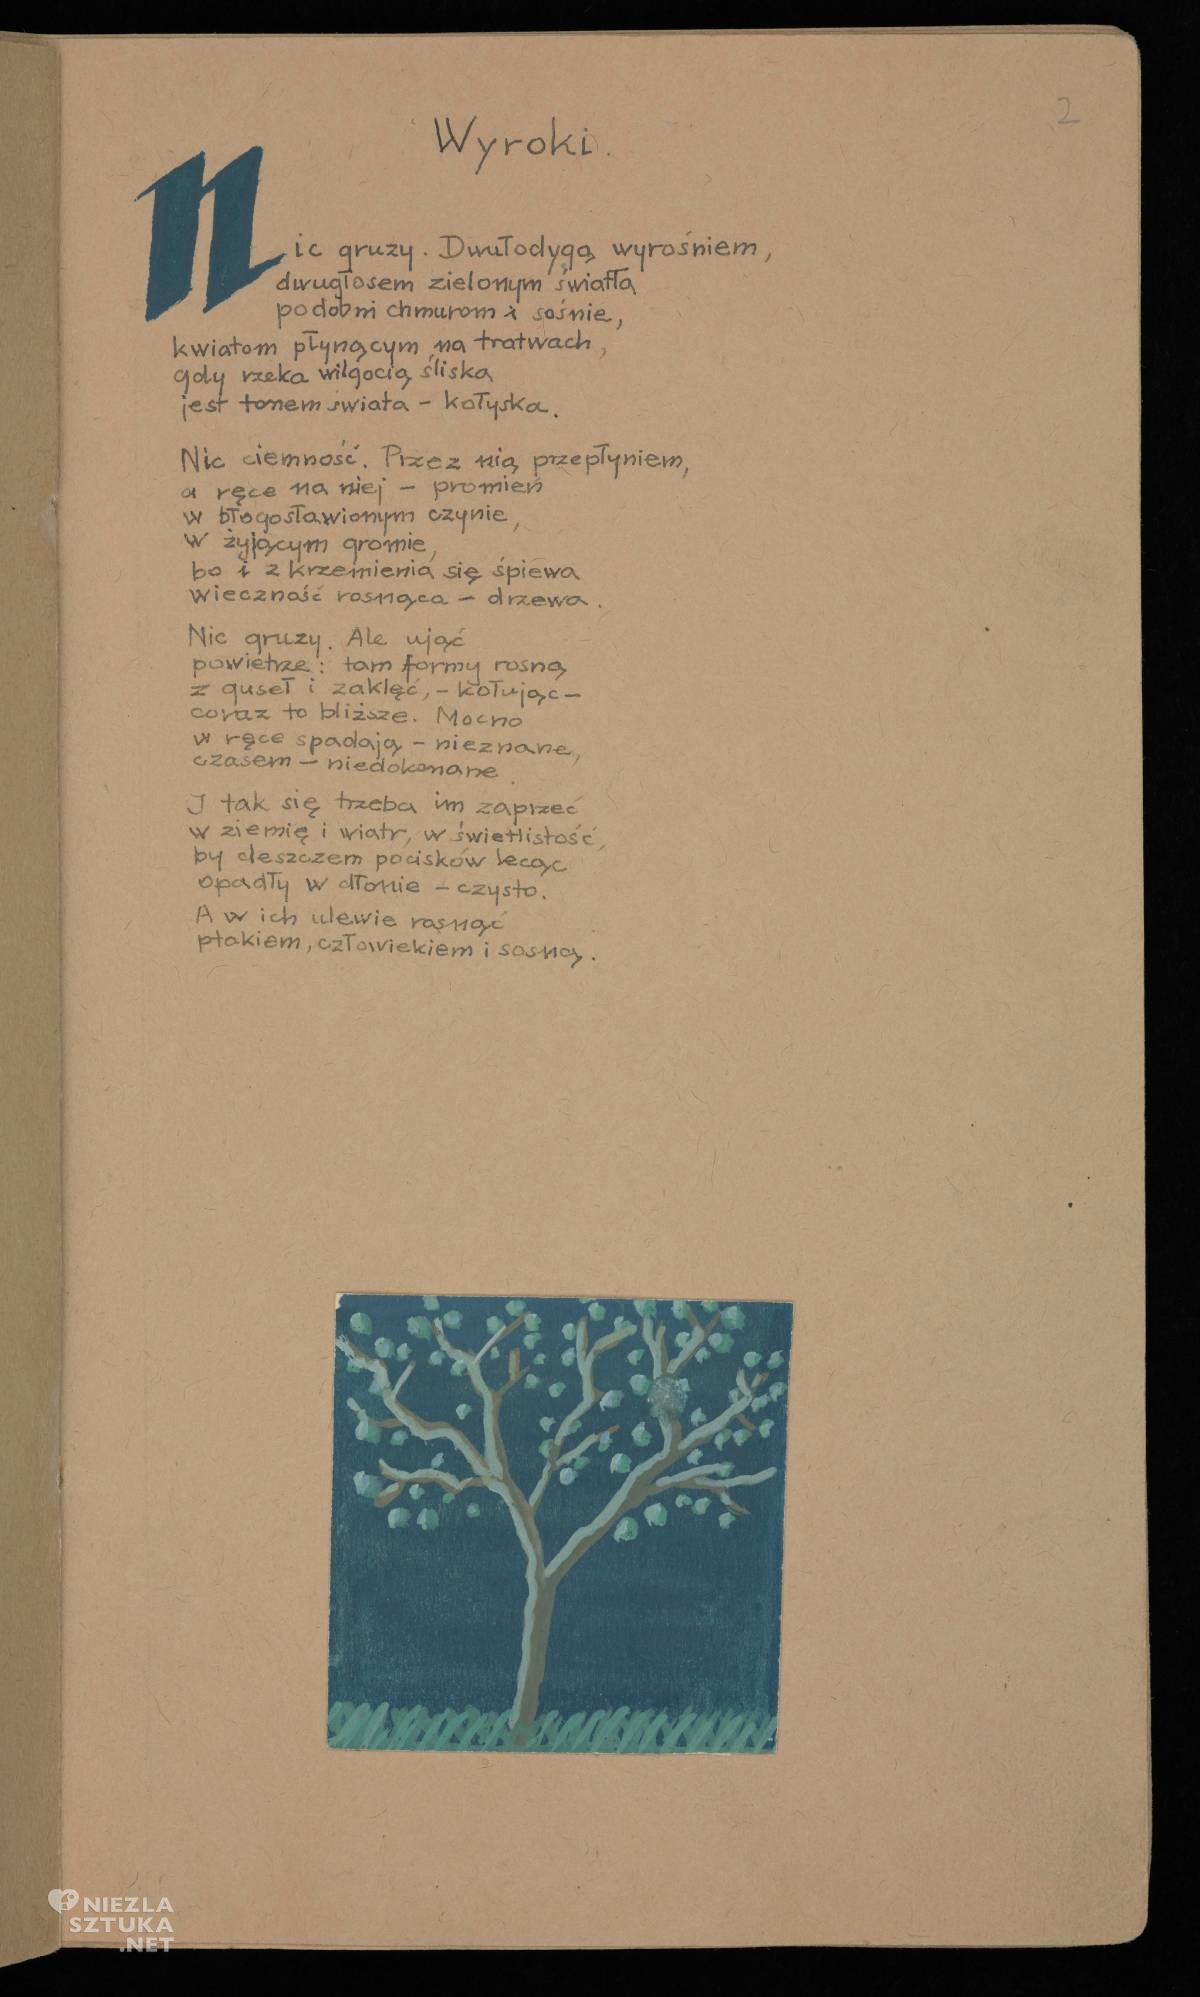 2
Wyroki.
Nic gruzy. Dwułodygą wyrośniem,
dwugłosem zielonym światła
podobni chmurom i sośnie,
kwiatom płynącym na tratwach,
gdy rzeka wilgocią śliska
jest tonem świata – kołyska.
Nic ciemność. Przez nią przepłyniem,
a ręce na niej – promień
w błogosławionym czynie,
w żyjącym gromie,
bo i z krzemienia się śpiewa
wieczność rosnąca – drzewa.
Nic gruzy. Ale ująć
powietrze: tam formy rosną
z guseł i zaklęć, – kołując –
coraz to bliższe. Mocno
w ręce spadają – nieznane,
czasem – niedokonane.
I tak się trzeba im zaprzeć
w ziemię i wiatr, w świetlistość,
by deszczem pocisków lecąc
opadły w dłonie – czysto.
A w ich ulewie rosnąć
ptakiem, człowiekiem i sosną.
NIEZLA
SZTUKA
.NET